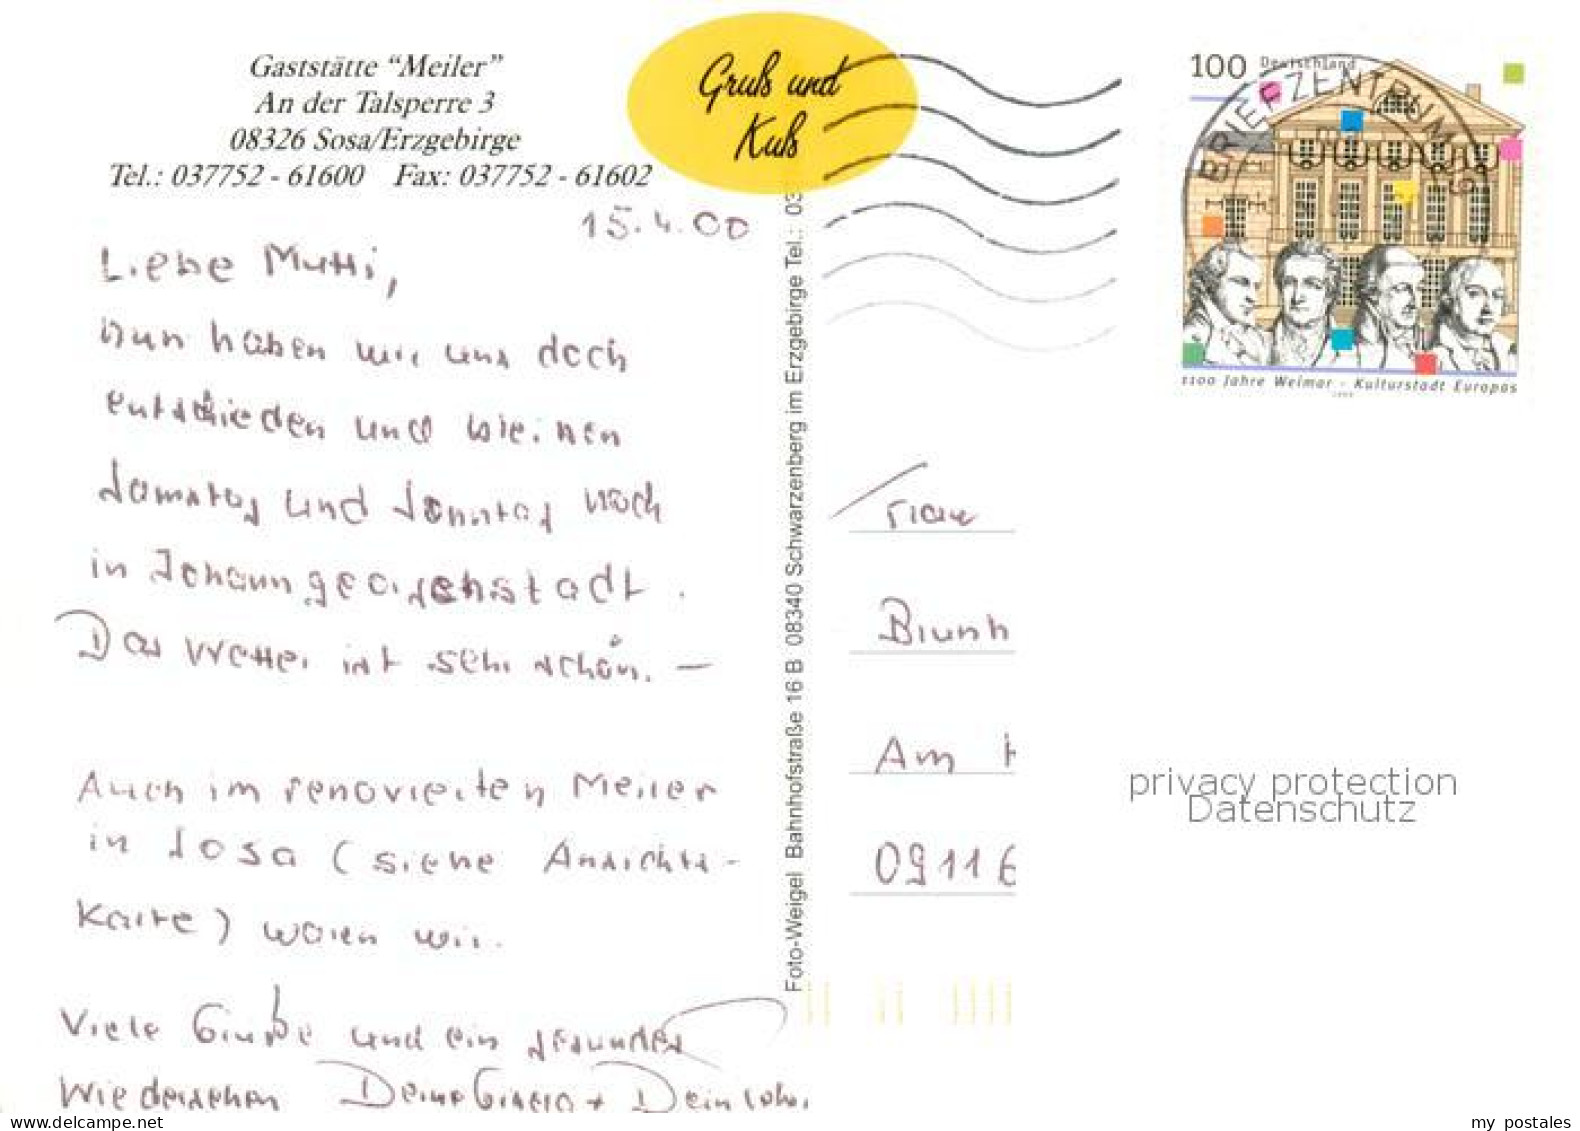 Gaststätte “Meiler”
An der Talsperre 3
08326 Sosa/Erzgebirge
Tel.: 037752 - 61600 Fax: 037752 - 61602
Gruß und
Kuß
15.4.00
Liebe Mutti,
nun haben wir uns doch
entschieden und bleiben
Samstag und Sonntag noch
in Johanngeorgenstadt.
Das Wetter ist sehr schön. –
Auch im renovierten Meiler
in Sosa (siehe Ansichts-
karte) waren wir.
Viele Grüße und ein gesundes
Wiedersehen Deine Gisela + Dein
Foto-Weigel Bahnhofstraße 16 B 08340 Schwarzenberg im Erzgebirge Tel.: 03
100 Deutschland
BRIEFZENTRUM
1100 Jahre Weimar - Kulturstadt Europas
Frau
Brunh
Am H
09116
privacy protection
Datenschutz
www.delcampe.net
my postales